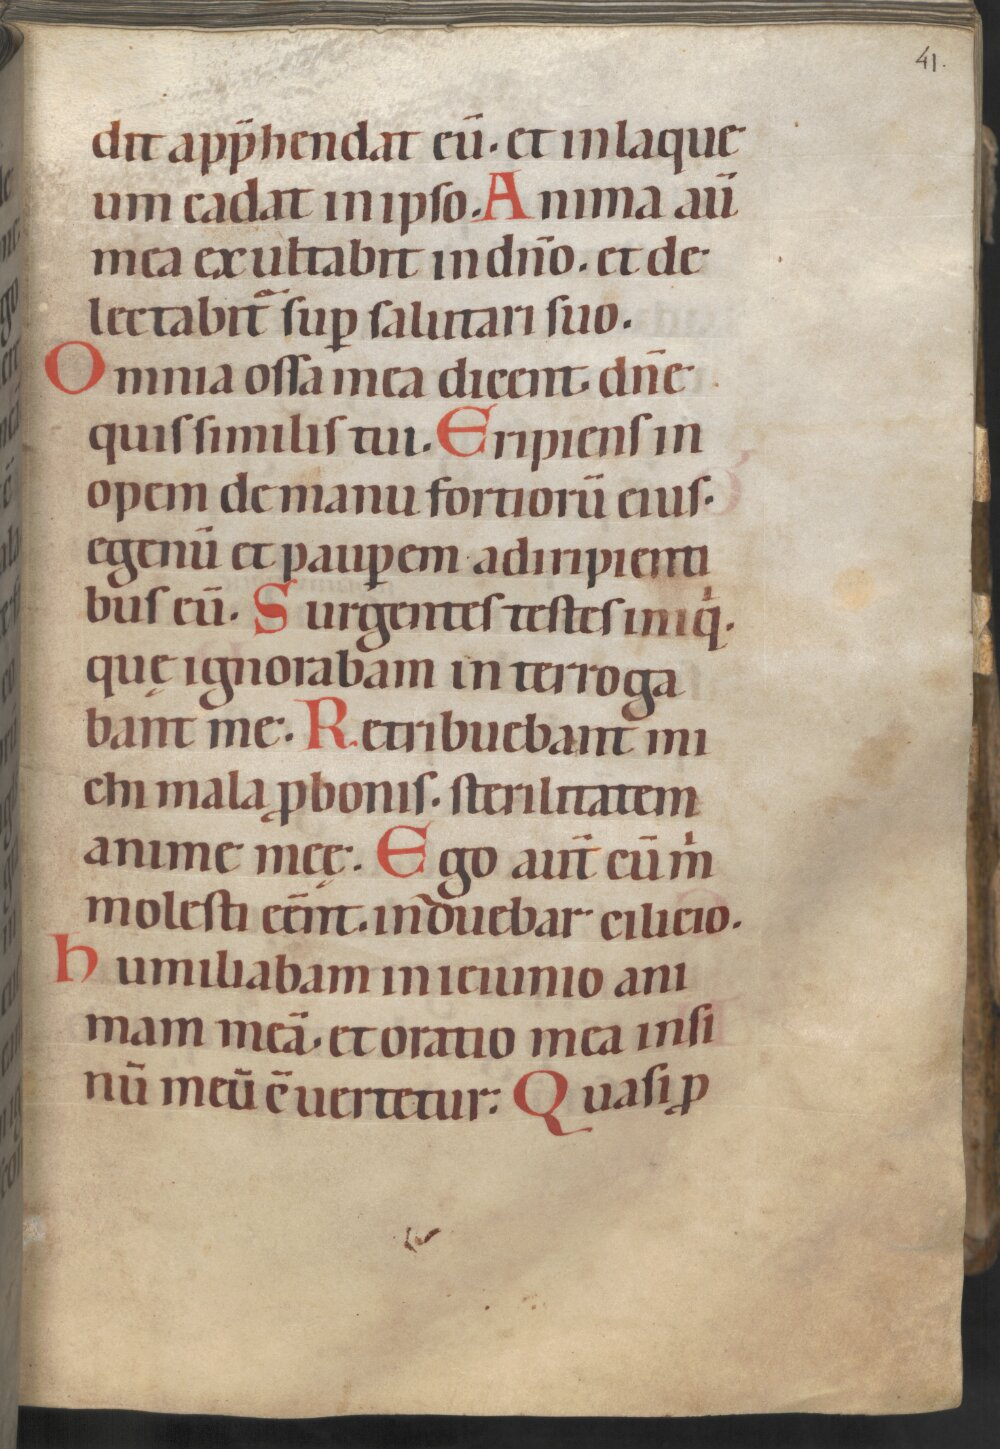 41.
dit app̄hendat eū. et inlaque
um cadat in ipso. Anima aū
mea exultabit in dn̄o. et de
lectabit̄ sup̱ salutari suo.
Omnia ossa mea dicent. dn̄e
quis similis tui. Eripiens in
opem de manu fortiorū eius.
egenū et paup̱em adiripienti
bus eū. Surgentes testes iniq̇.
quę ignorabam in terroga
bant me. Retribuebant mi
chi mala ꝓ bonis. sterilitatem
anime meę. Ego aut̄ cū m̍
molesti eēnt. induebar cilicio.
humiliabam in ieiunio ani
mam meā. et oratio mea insi
nū meū c̄uertetur. Quasi ꝓ